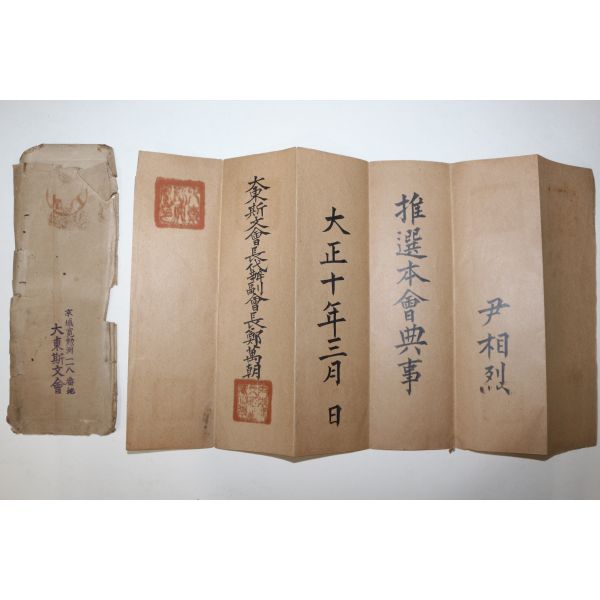 尹相烈
推選本會典事
大正十年三月 日
大東斯文會長代辦副會長鄭萬朝
京城寬勳洞一八番地
大東斯文會